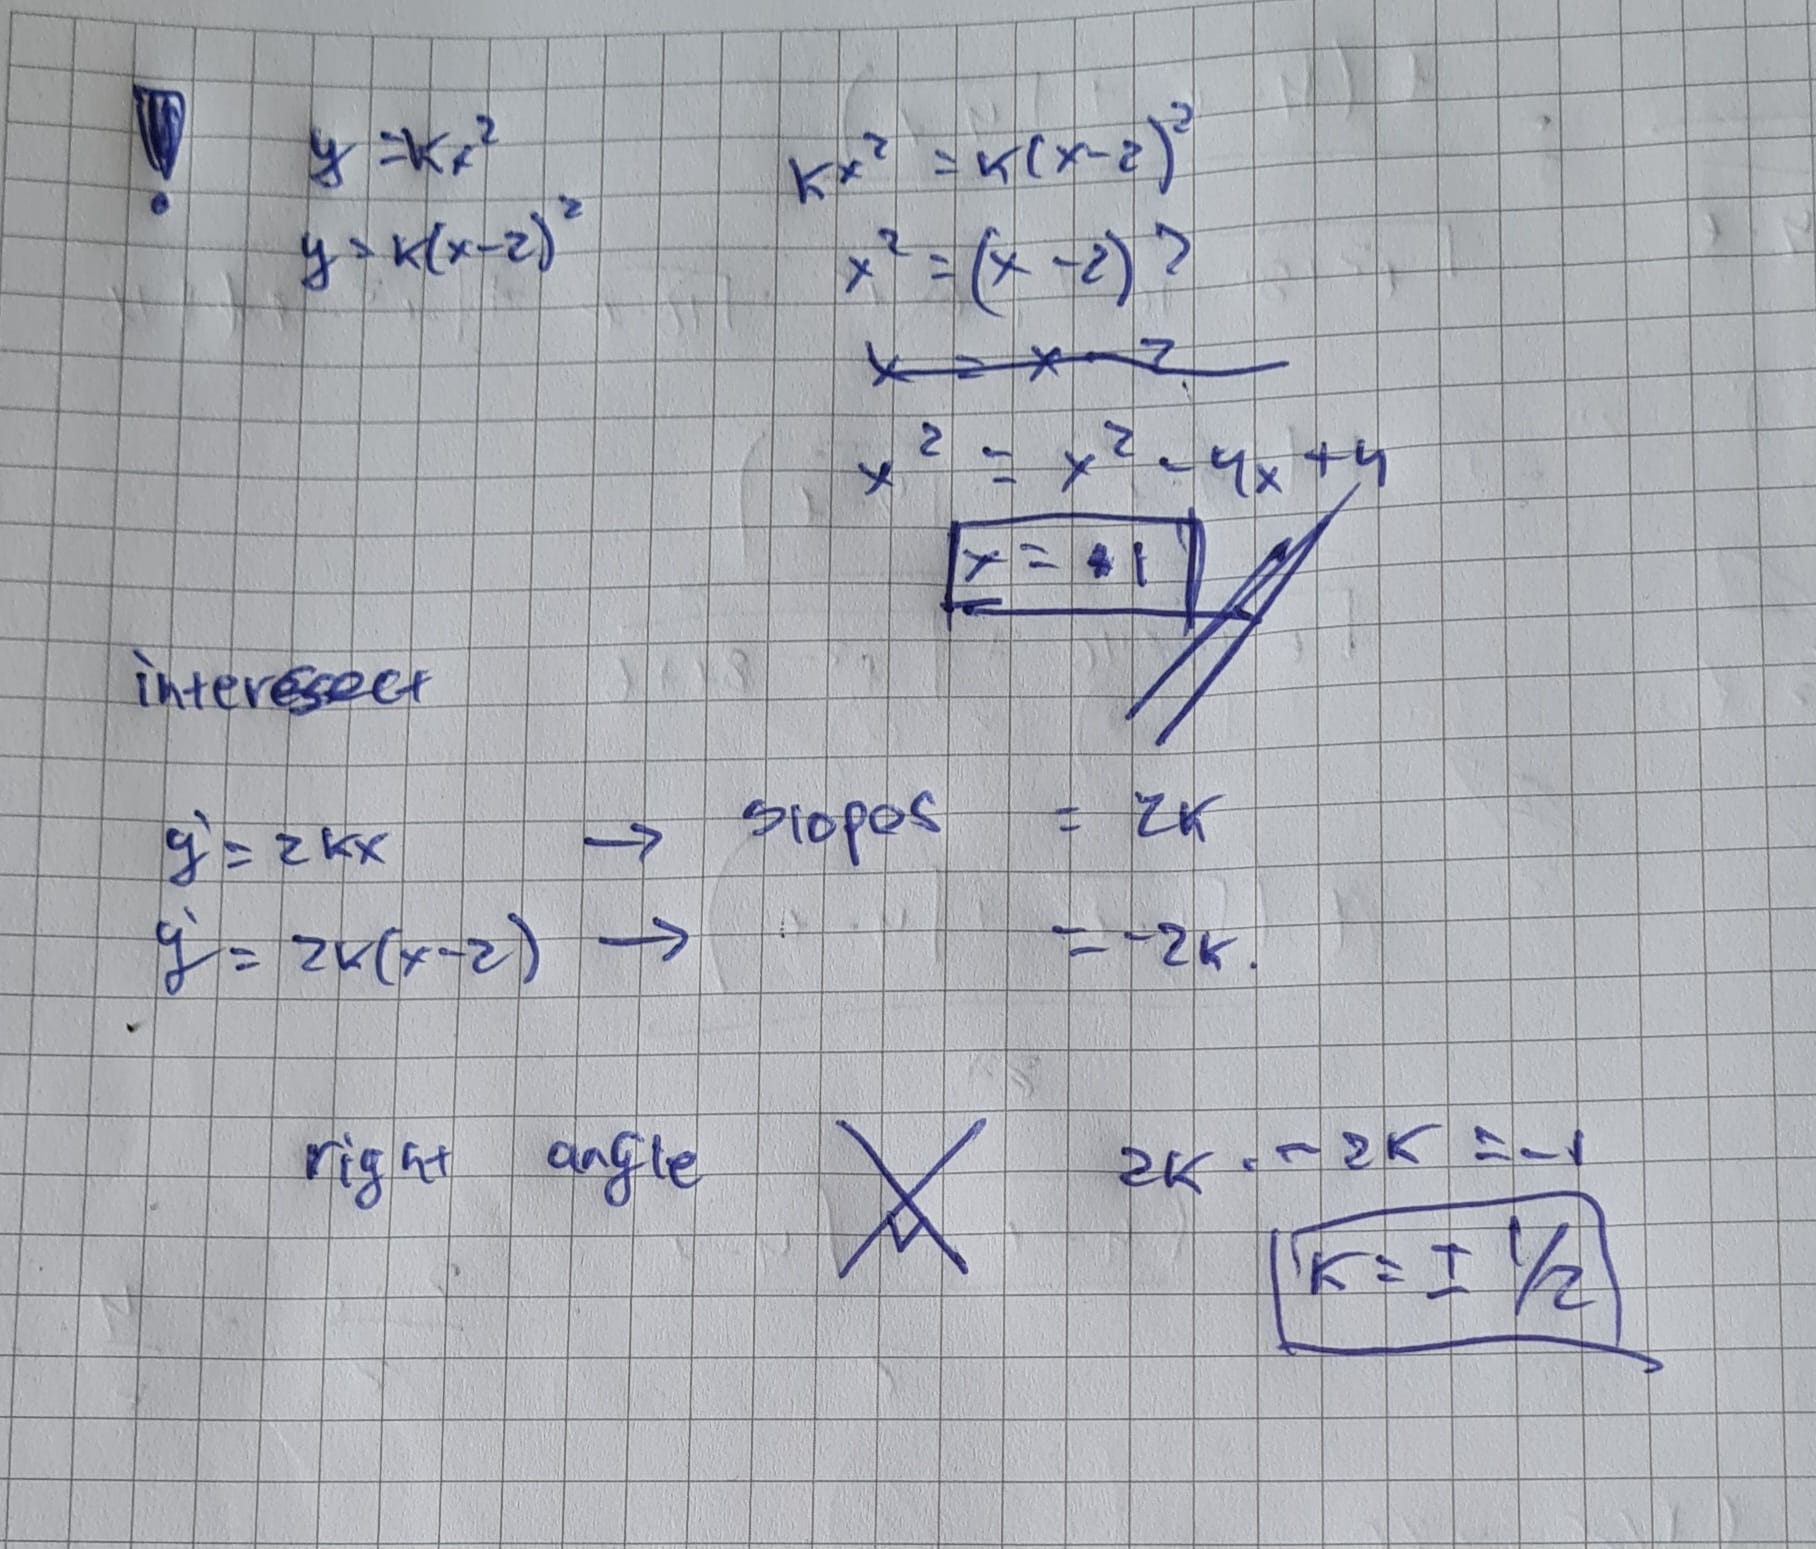 !
y = kx²
y = k(x-2)²
kx² = k(x-2)²
x² = (x-2)²
x = x - 2
x² = x² - 4x + 4
x = 1
intersect
y' = 2kx → slopes = 2k
y' = 2k(x-2) → = -2k.
right angle 2k · -2k = -1
k = ± 1/2